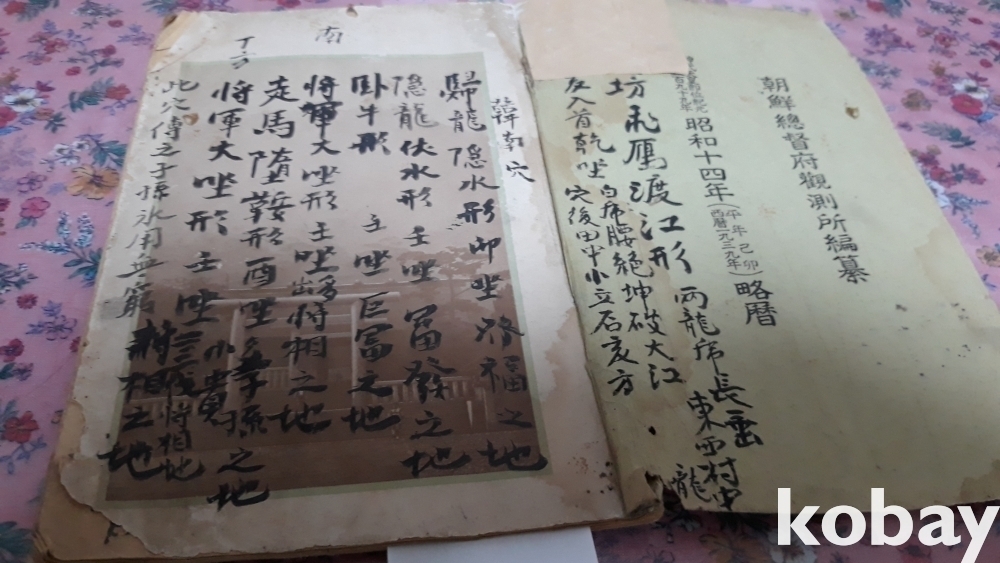 朝鮮總督府觀測所編纂
昭和十四年(平年己卯 西曆一九三九年)略曆
兩龍虎長垂
東西村中
坊飛鴈渡江形
龍
白虎腰絶坤破大江
反入首乾坐
穴後田中小立石亥方
南
丁方
韓南穴
歸龍隱水形卯坐 發福之地
隐龍伏水形壬坐 富發之地
卧牛形 壬坐 巨富之地
將軍大坐形壬坐 多出將相之地
走馬墮鞍形酉坐 多子孫之地
將軍大坐形壬坐
三代將相地
將相之地
此穴傳之子孫永用無窮
kobay